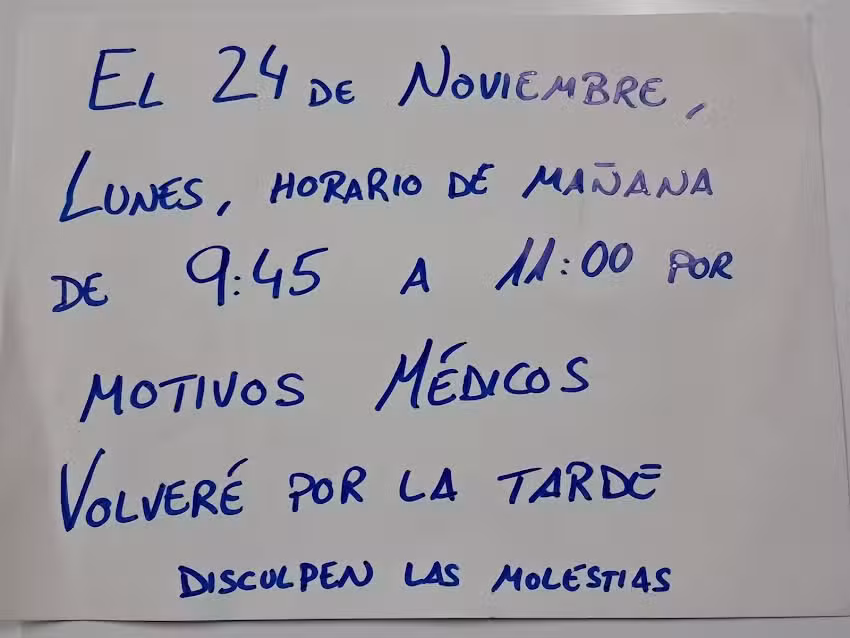 El 24 de Noviembre,
Lunes, horario de mañana
de 9:45 a 11:00 por
motivos Médicos
Volveré por la tarde
disculpen las molestias